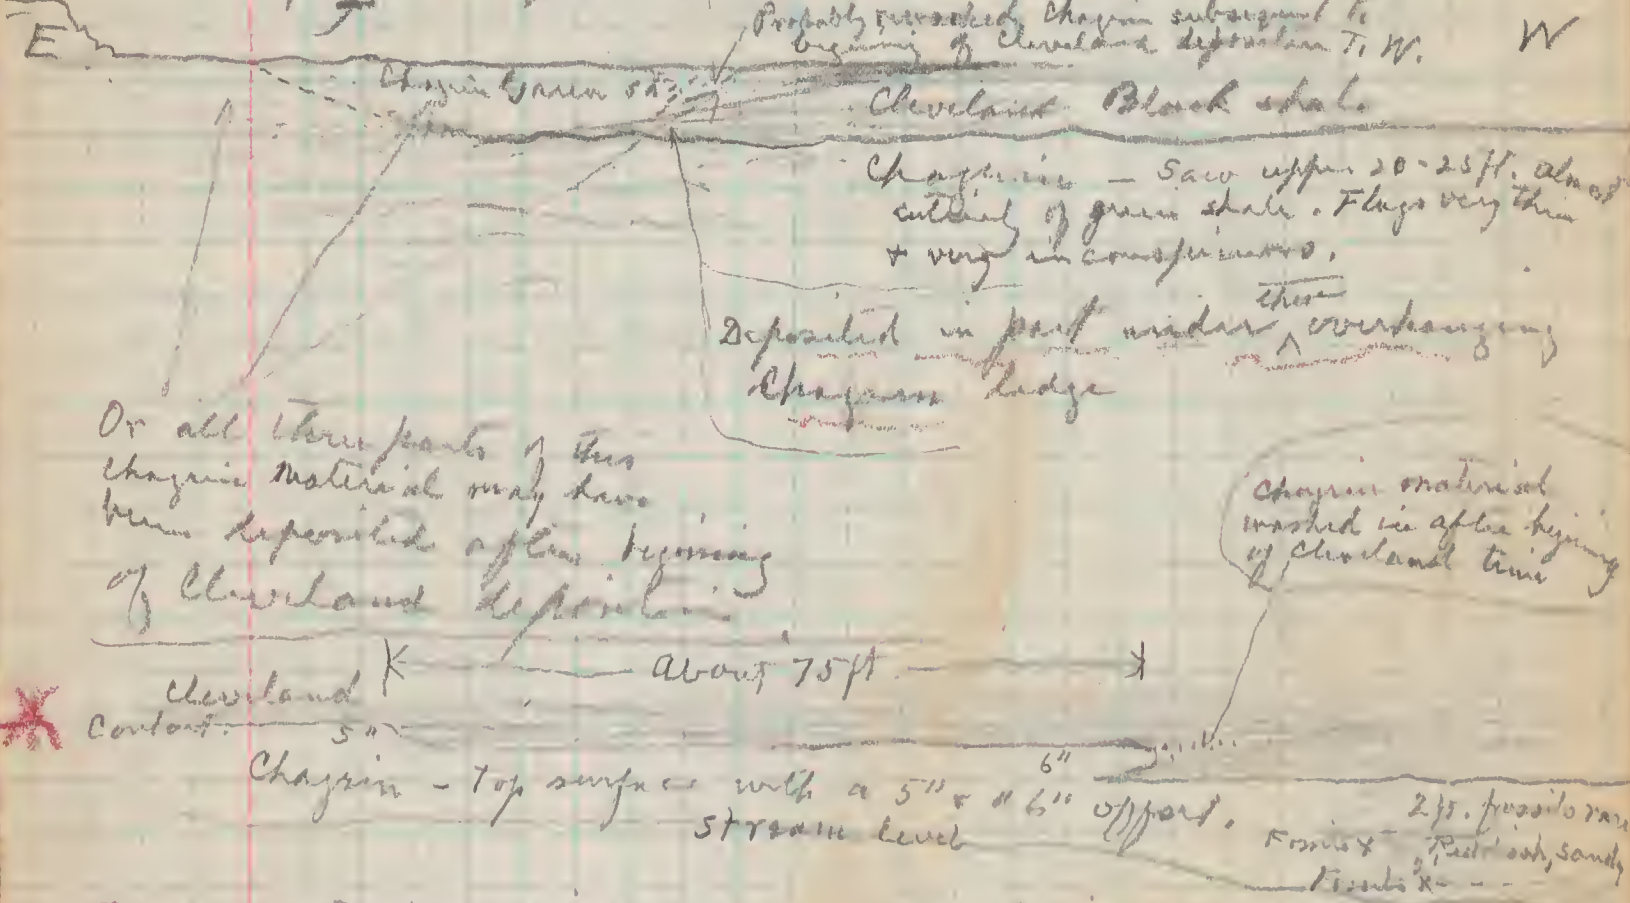 Probably reworked Chagrin subsequent to
beginning of Cleveland deposition T. W.
E
W
Chagrin Green sh.
Cleveland Black shale
Chagrin – Saw upper 20-25 ft. almost
entirely of green shale. Flags very thin
+ very inconspicuous.
Deposited in part under this overhanging
Chagrin ledge
Or all three parts of this
Chagrin material may have
been deposited after begining
of Cleveland deposition
Chagrin material
washed in after begining
of Cleveland time
About 75 ft
Cleveland
Contact
5"
6"
Chagrin – Top surface with a 5" & a 6" offset.
stream level
2 ft. fossils rare
Fossils x Reddish, sandy
Fossils x - - -